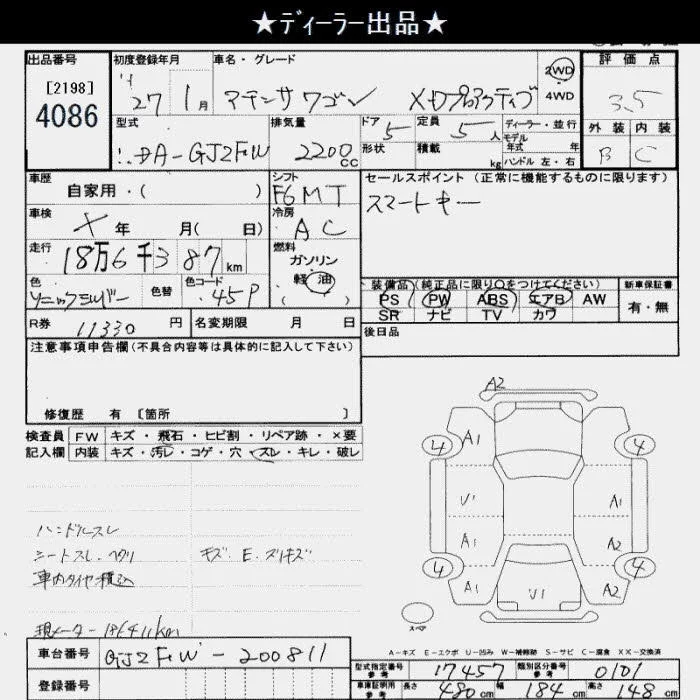 ★ディーラー出品★
出品番号 初度登録年月 車名・グレード 評価点
[2198]
4086
27年 1月 アテンザワゴン XDプロアクティブ 2WD ・ 4WD 3.5
型式 排気量 ドア 5 定員 5人 ディーラー・並行 外装 内装
DA-GJ2FW 2200CC 形状 積載 kg モデル年式 年 B C
ハンドル 左・右
車歴 シフト セールスポイント(正常に機能するものに限ります)
自家用・( ) F6MT スマートキー
車検 × 年 月( 日) 冷房 AC
走行 18万6千387km 燃料 ガソリン
軽油
色 ソニックシルバー 色替 色コード 45P
装備品(純正品に限り○をつけてください) 新車保証書
PS PW ABS エアB AW 有・無
SR ナビ TV カワ
R券 11330円 名変期限 月 日 後日品
注意事項申告欄(不具合内容等は具体的に記入して下さい)
修復歴 有 [箇所 ]
検査員 FW キズ・飛石・ヒビ割・リペア跡・×要
記入欄 内装 キズ・汚レ・コゲ・穴・スレ・キレ・破レ
A2
4 A1 4
U1 A1
A1 A2
4 A1 U1 A2 4
スペア
ハンドルスレ
シートスレ・ヘタリ キズ・E・スリキズ
車内タイヤ積込
現メーター186411km
A-キズ E-エクボ U-凹み W-補修跡 S-サビ C-腐食 XX-交換済
車台番号 GJ2FW-200811
型式指定番号参考 17457 類別区分番号参考 0101
登録番号
車庫証明用参考 長さ 480cm 幅 184cm 高さ 148cm